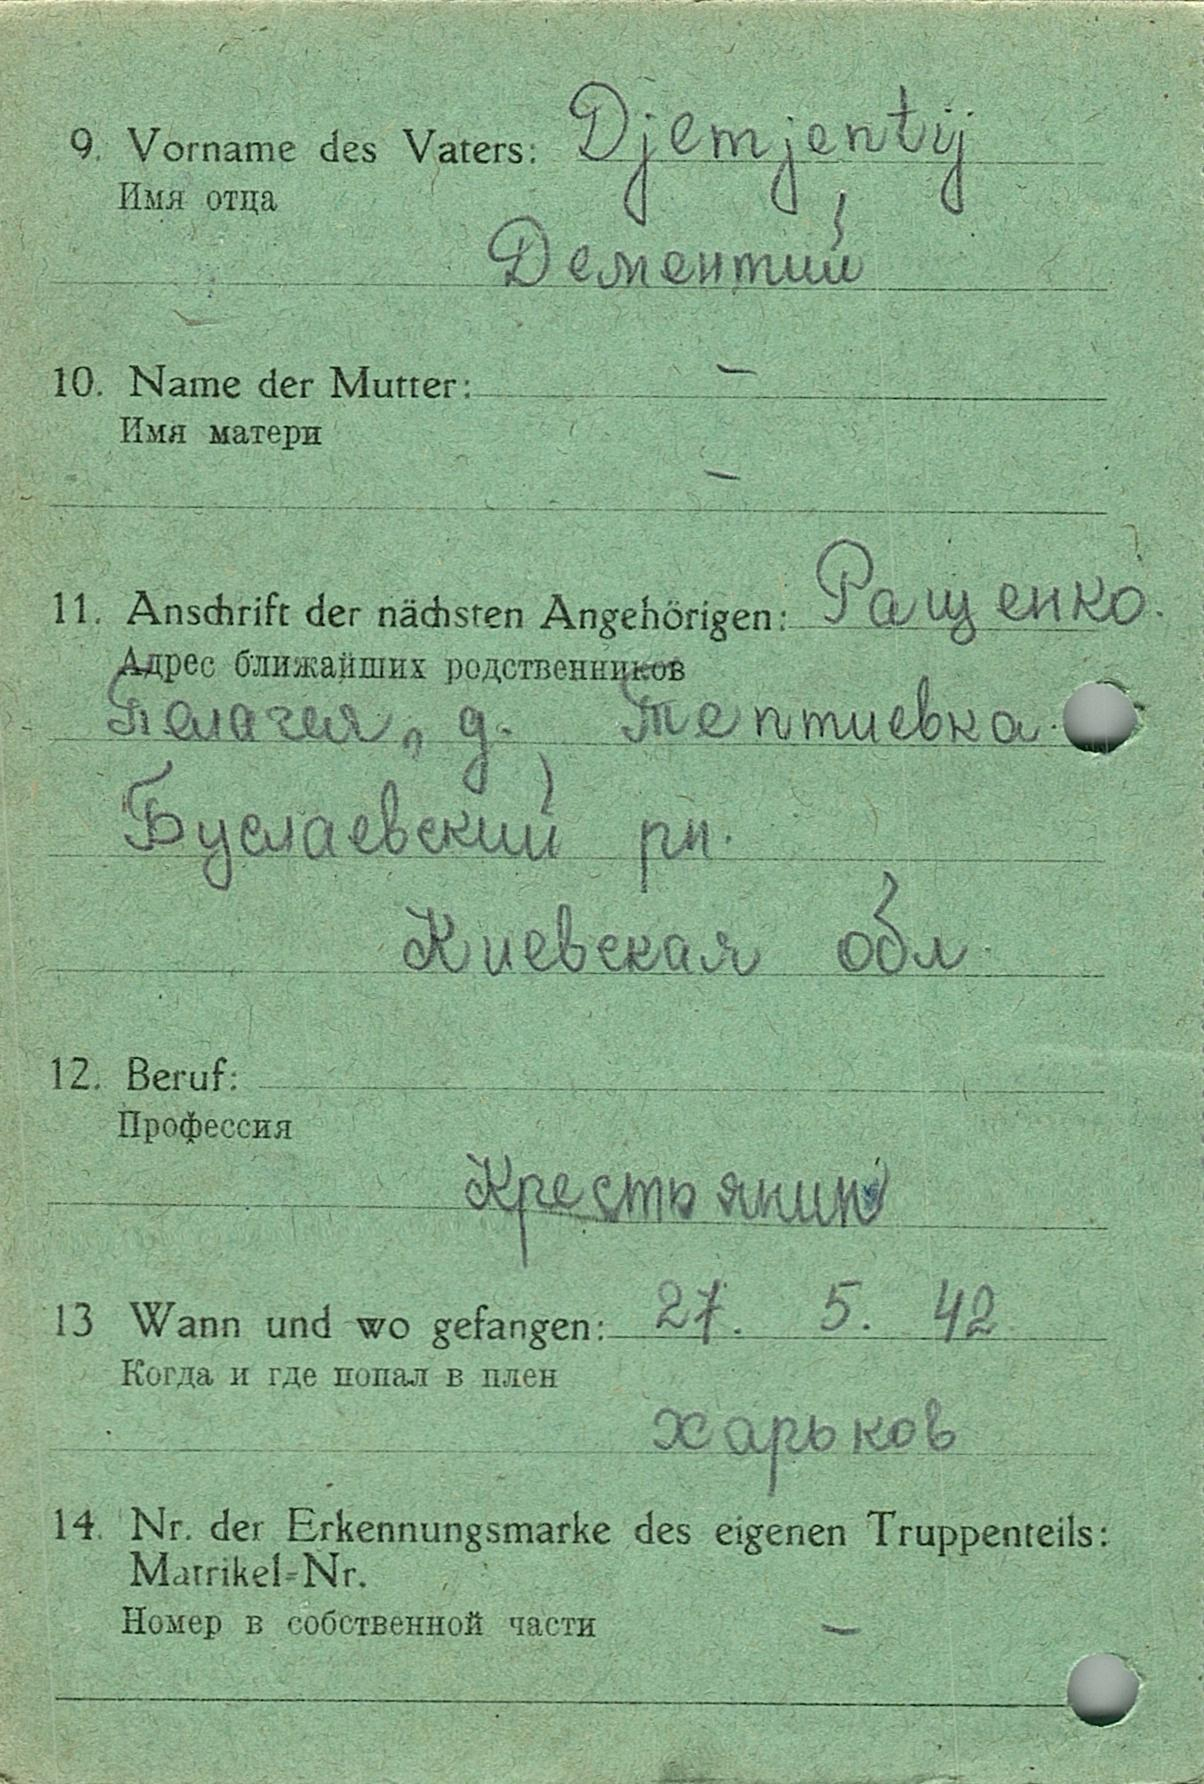 9. Vorname des Vaters: Djemjentij
Имя отца
Дементий
10. Name der Mutter: –
Имя матери
–
11. Anschrift der nächsten Angehörigen: Ращенко.
Адрес ближайших родственников
Пелагея, д. Тептиевка.
Буслаевский рн.
Киевская обл.
12. Beruf:
Профессия
Крестьянин
13 Wann und wo gefangen: 27. 5. 42
Когда и где попал в плен
харьков
14. Nr. der Erkennungsmarke des eigenen Truppenteils:
Matrikel-Nr.
Номер в собственной части –